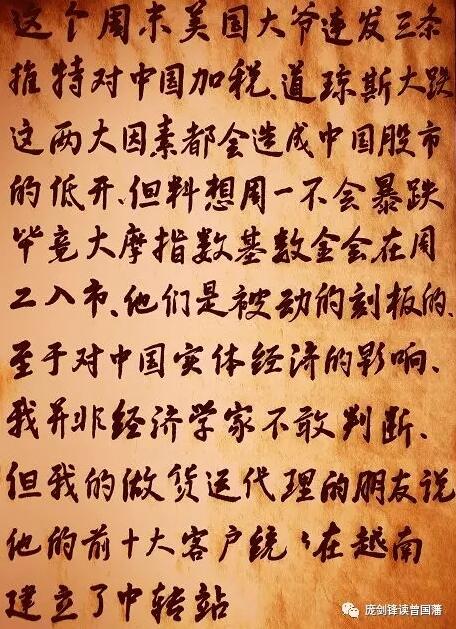 这个周末美国大爷连发三条
推特对中国加税、道琼斯大跌
这两大因素都会造成中国股市
的低开、但料想周一不会暴跌
毕竟大摩指数基数金会在周
二入市、他们是被动的刻板的、
至于对中国实体经济的影响、
我并非经济学家不敢判断、
但我的做货运代理的朋友说
他的前十大客户统〻在越南
建立了中转站
庞剑锋读曾国藩